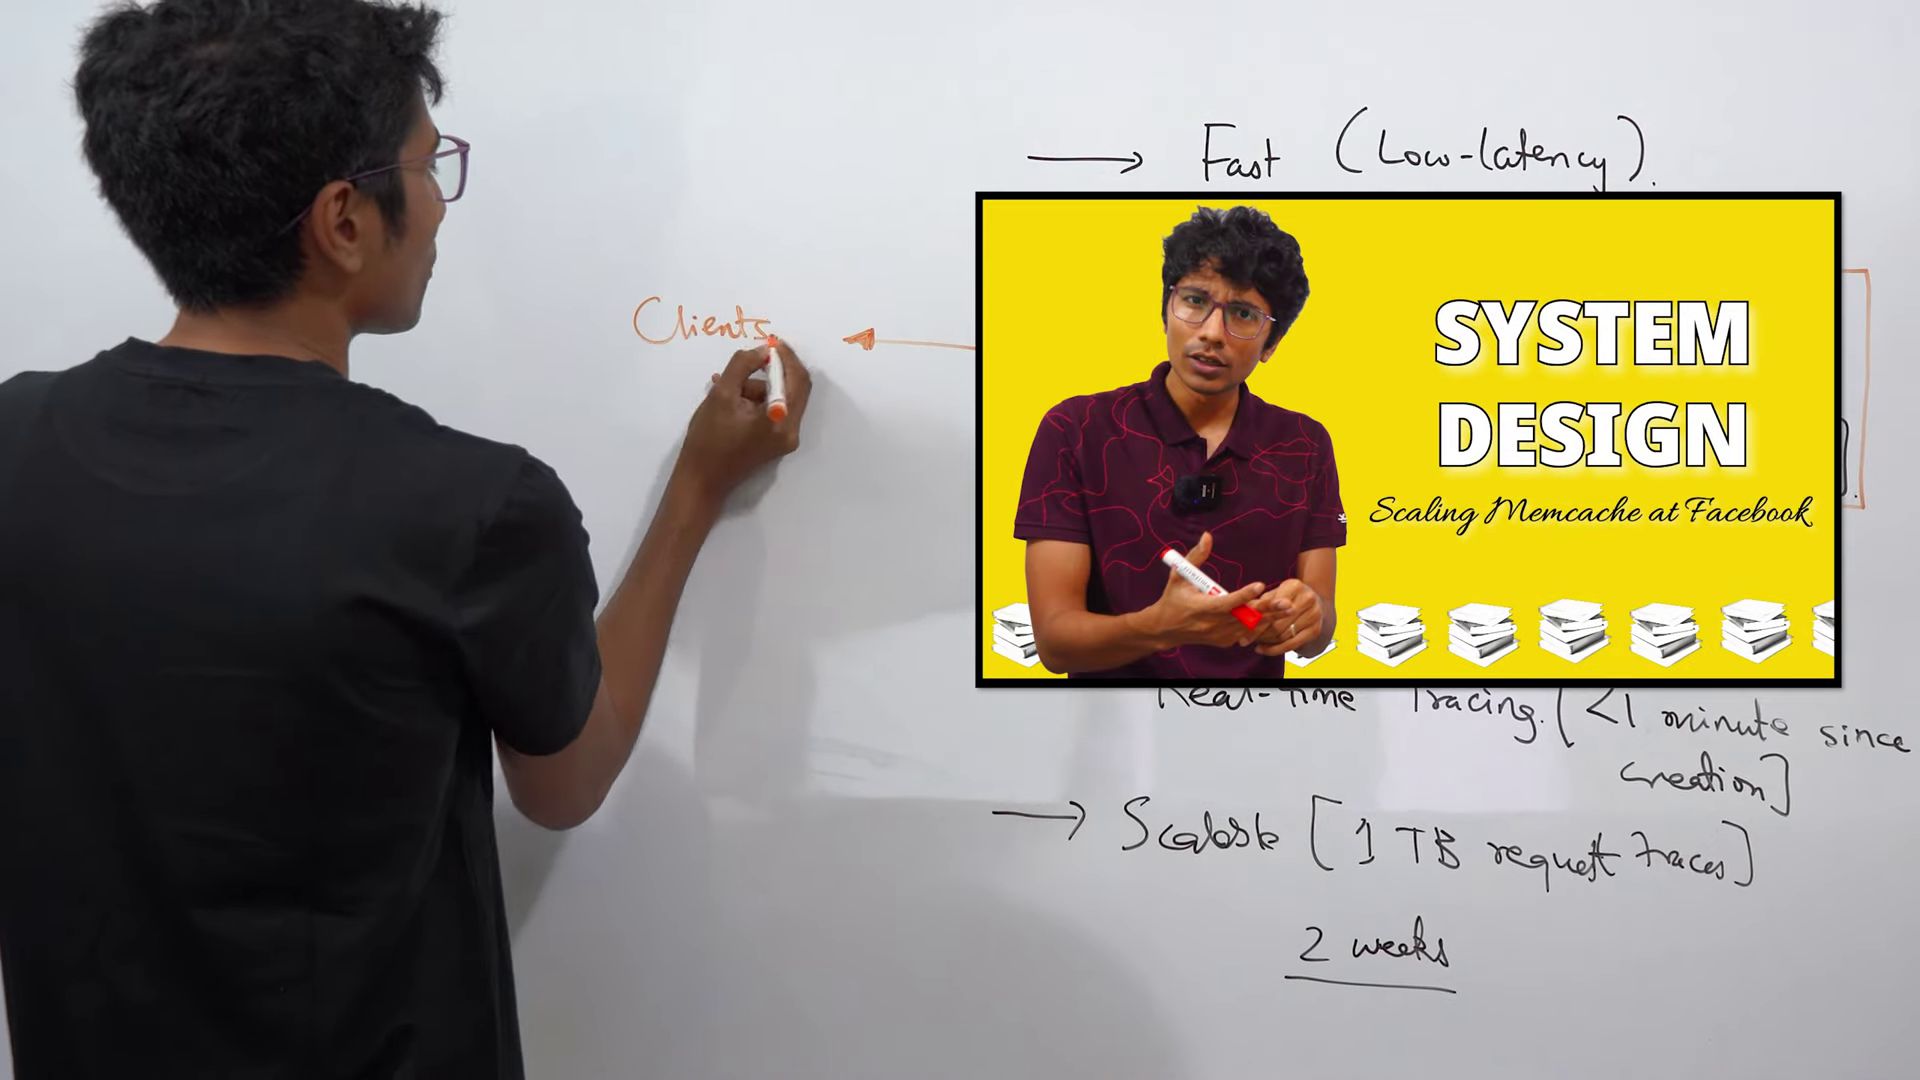 Fast (Low-latency).
Clients
SYSTEM
DESIGN
Scaling Memcache at Facebook
Real-time Tracing. [<1 minute since
creation]
Scalable [1 TB request traces]
2 weeks